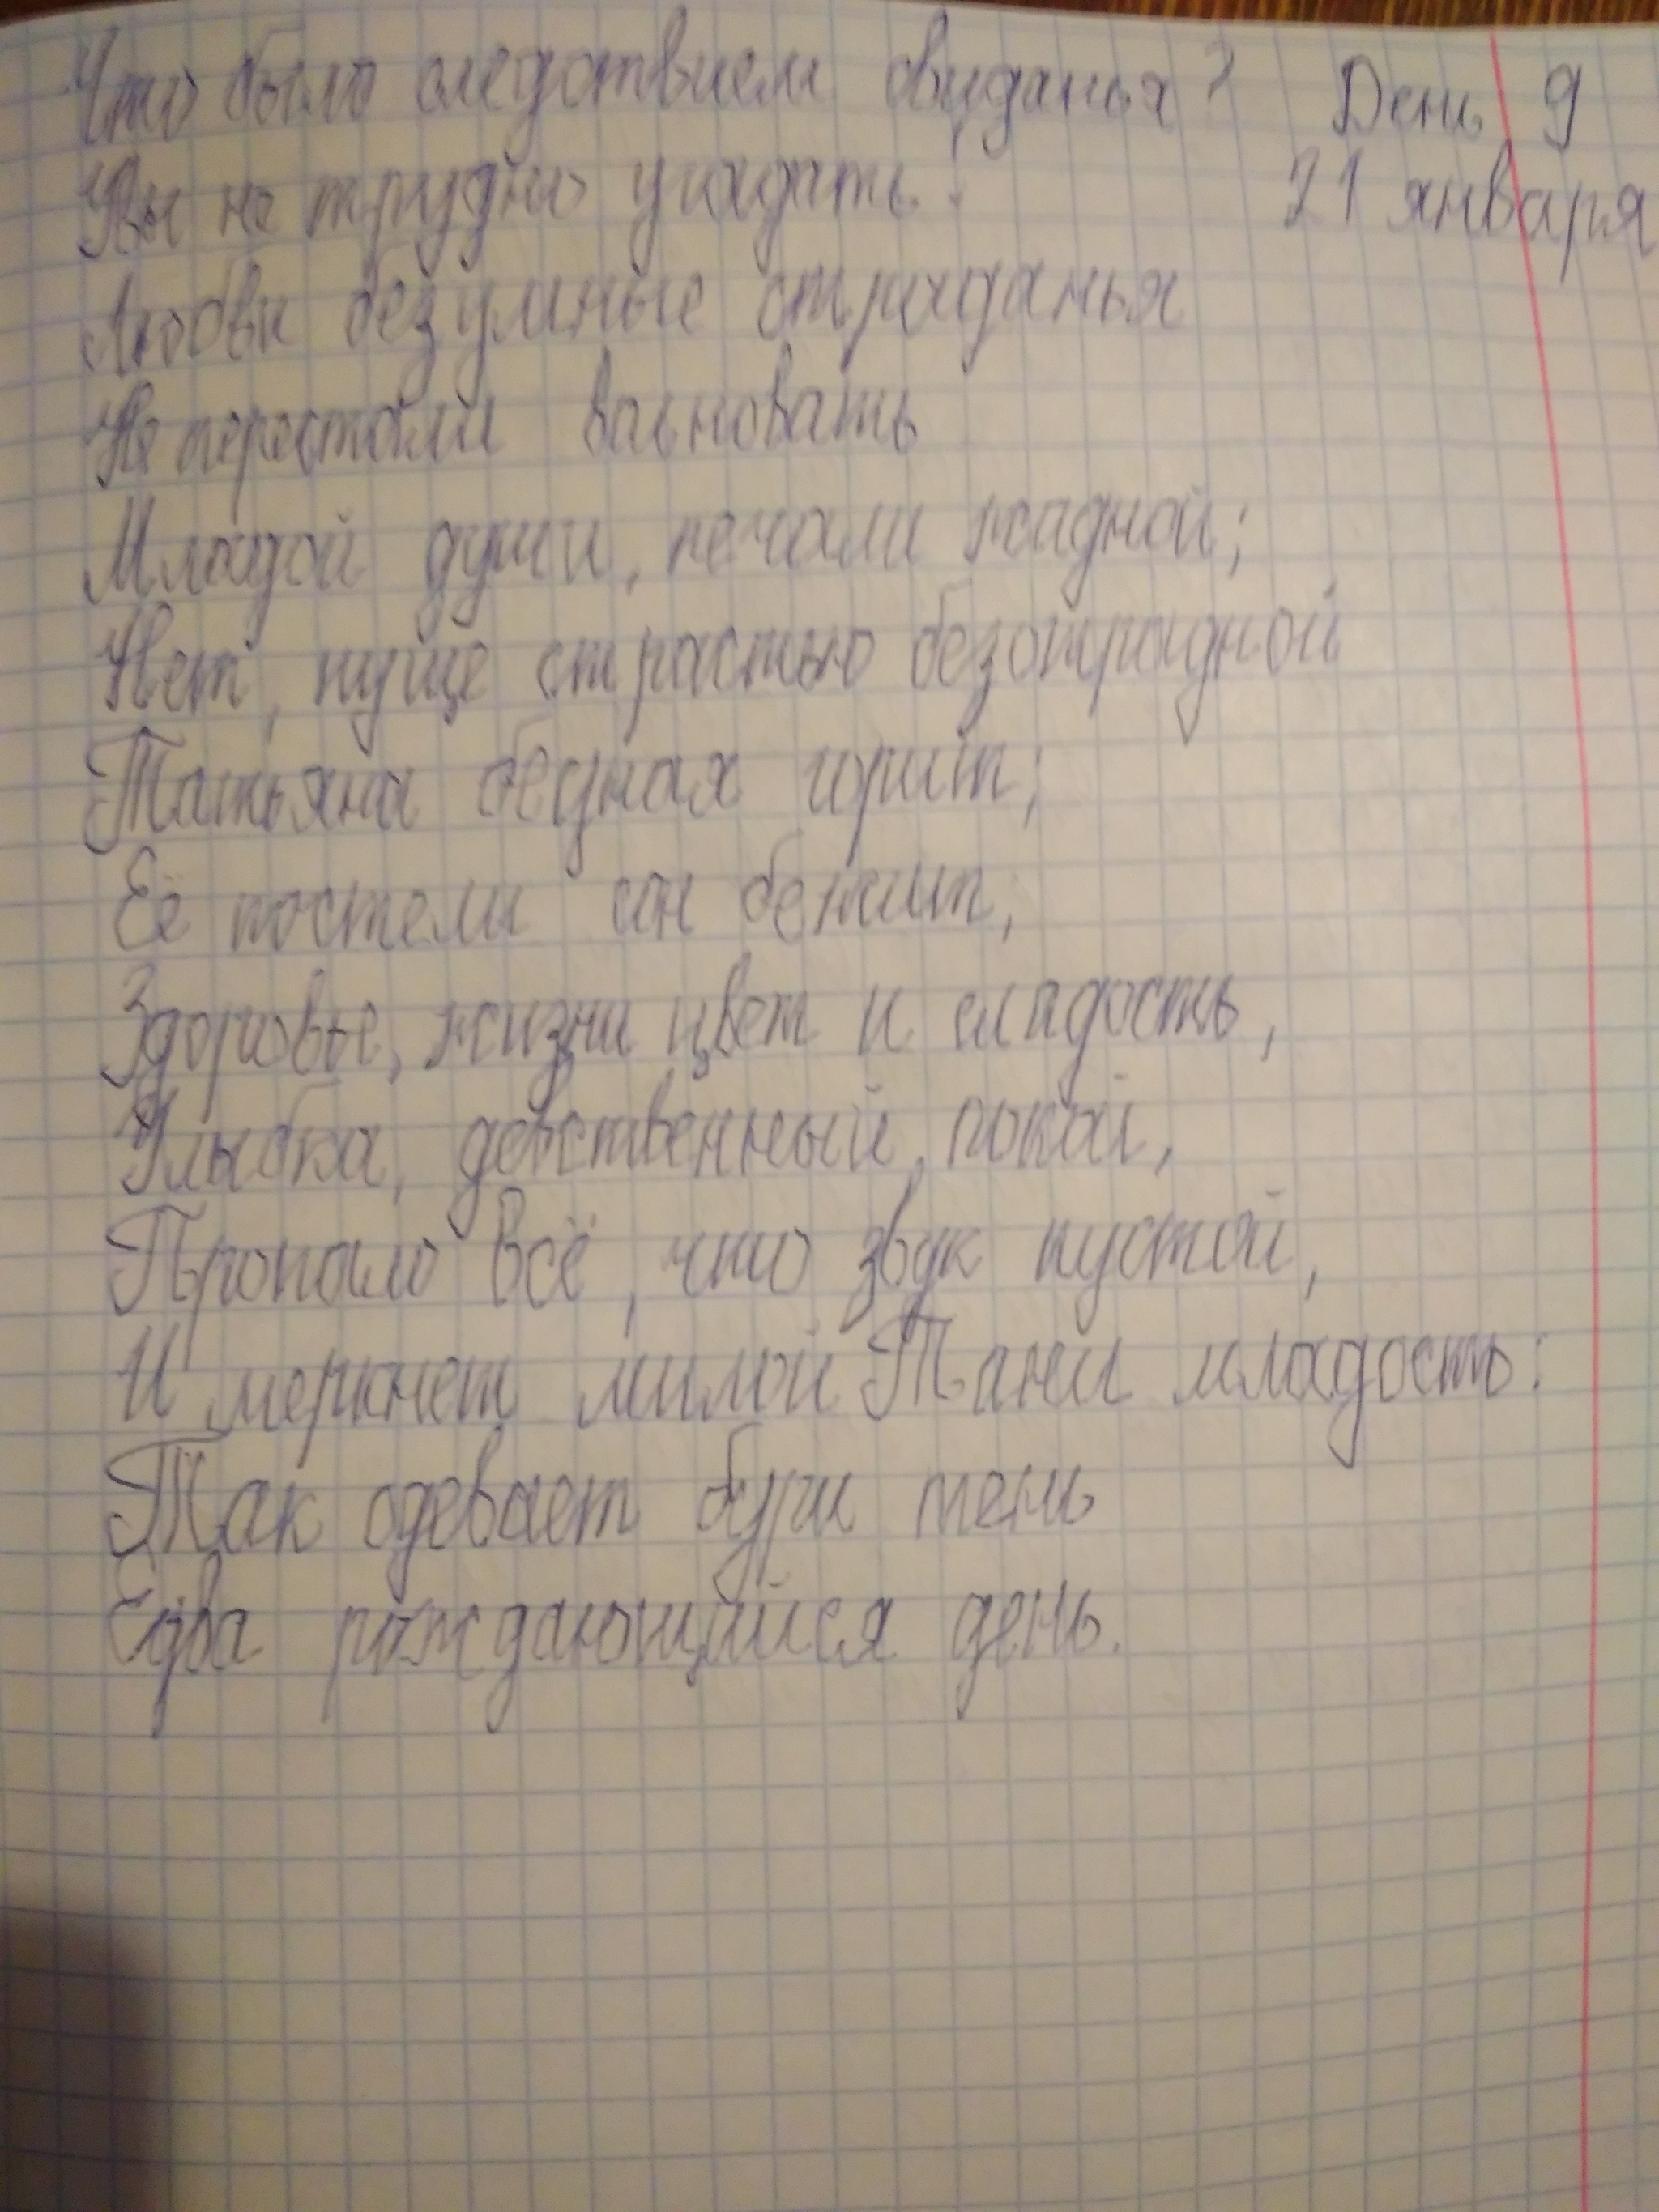 Что было следствием свиданья? День 9
Увы не трудно угадать! 21 января
Любви безумные страданья
Не перестали волновать
Младой души, печали жадной;
Нет, пуще страстью безотрадной
Татьяна бедная горит;
Её постели сон бежит;
Здоровье, жизни цвет и сладость,
Улыбка, девственный покой,
Пропало всё, что звук пустой,
И меркнет милой Тани младость:
Так одевает бури тень
Едва рождающийся день.